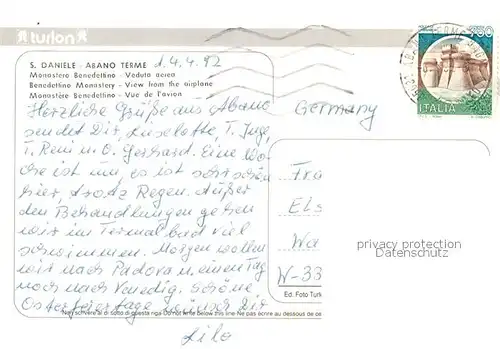 turlon
S. DANIELE - ABANO TERME d. 4.4.92
Monastero Benedettino - Veduta aerea
Benedictin Monastery - View from the airplane
Monastère Benedettino - Vue de l'avion
750
ITALIA
Germany
Herzliche Grüße aus Abano
sendet Dir, Liselotte, T. Inge,
T. Reni u. O. Gerhard. Eine Wo-
che ist um, es ist sehr schön
hier, trotz Regen. Außer
den Behandlungen gehen
wir im Termalbad viel
schwimmen. Morgen wollen
wir nach Padova u. einen Tag
noch nach Venedig. Schöne
Osterfeiertage wünscht Dir
Lilo
Fra
Els
Wa
W-33
privacy protection
Datenschutz
Ed. Foto Turk
Non scrivere al di sotto di questa riga Do not write below this line Ne pas écrire au dessous de ce